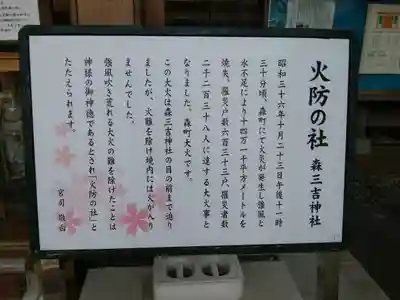 火防の社 森三吉神社
昭和三十六年十月二十三日午後十一時
三十分頃、森町にて火災が発生し強風と
水不足により十四万一千平方メートルを
焼失、罹災戸数六百三十三戸、罹災者数
二千二百三十八人に達する大火事と
なりました。森町大火です。
この大火は森三吉神社の目の前まで迫り
ましたが、火難を除け境内には火が入り
ませんでした。
強風吹き荒れる大火の難を除けたことは
神様の御神徳であるとされ「火防の社」と
たたえられます。
宮司 敬白